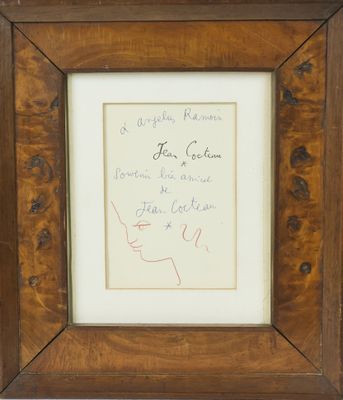 à angelus Ramoin
Jean Cocteau
*
Souvenir bien amical
de
Jean Cocteau
*